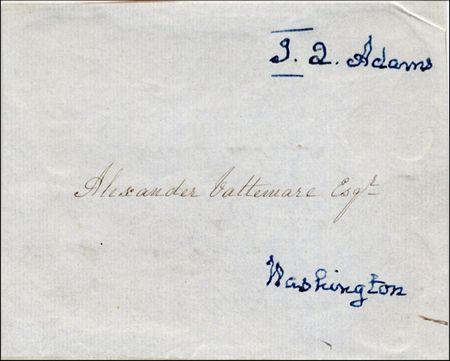 J. Q. Adams
Alexander Vattemare Esqr.
Washington